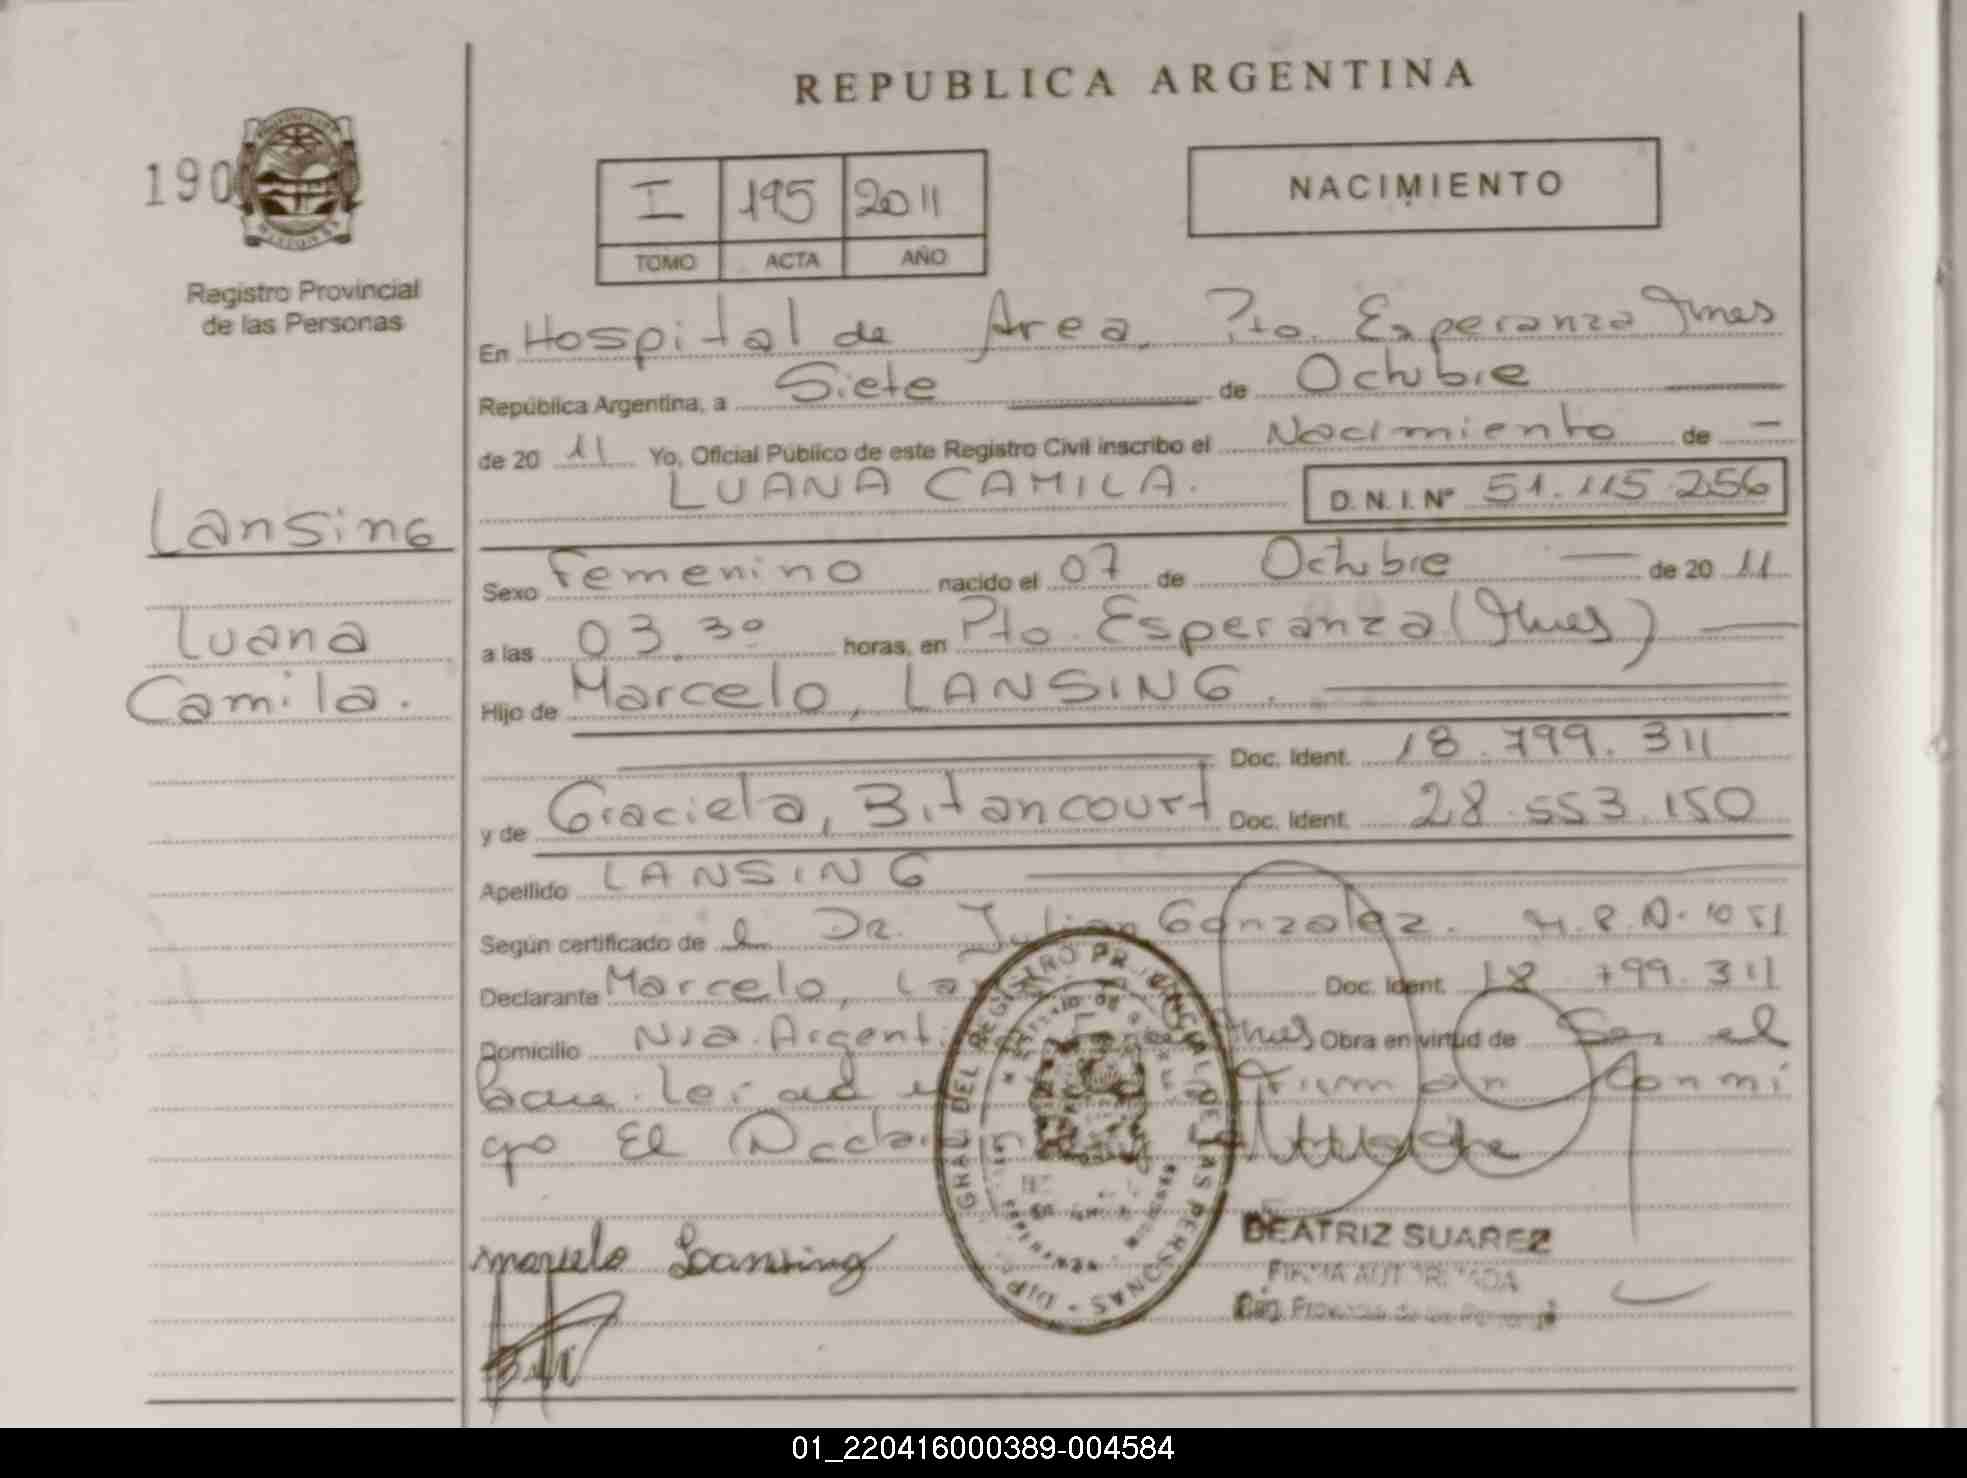 REPUBLICA ARGENTINA
190
NACIMIENTO
I 195 2011
TOMO ACTA AÑO
Registro Provincial
de las Personas
En Hospital de Area, Pto. Esperanza Mnes
República Argentina, a Siete de Octubre
de 20 11 Yo, Oficial Público de este Registro Civil inscribo el Nacimiento de —
LUANA CAMILA. D. N. I. Nº 51.115.256
Lansing
Luana
Camila.
Sexo Femenino nacido el 07 de Octubre — de 20 11
a las 03.30 horas, en Pto. Esperanza (Mnes) —
Hijo de Marcelo, LANSING.
Doc. Ident. 18.799.311
y de Graciela, Bitancourt Doc. Ident. 28.553.150
Apellido LANSING
Según certificado de el Dr. Julian Gonzalez. M.P.N. 1051
Declarante Marcelo, Doc. Ident. 18 799.311
Domicilio Nva. Argenti Mnes Obra en virtud de Ser el
Leida Firman Conmi
go El
GRAL DEL REGISTRO PROVINCIAL DE LAS PERSONAS - DIR
marcelo Lansing
BEATRIZ SUAREZ
FIRMA AUTORIZADA
01_220416000389-004584